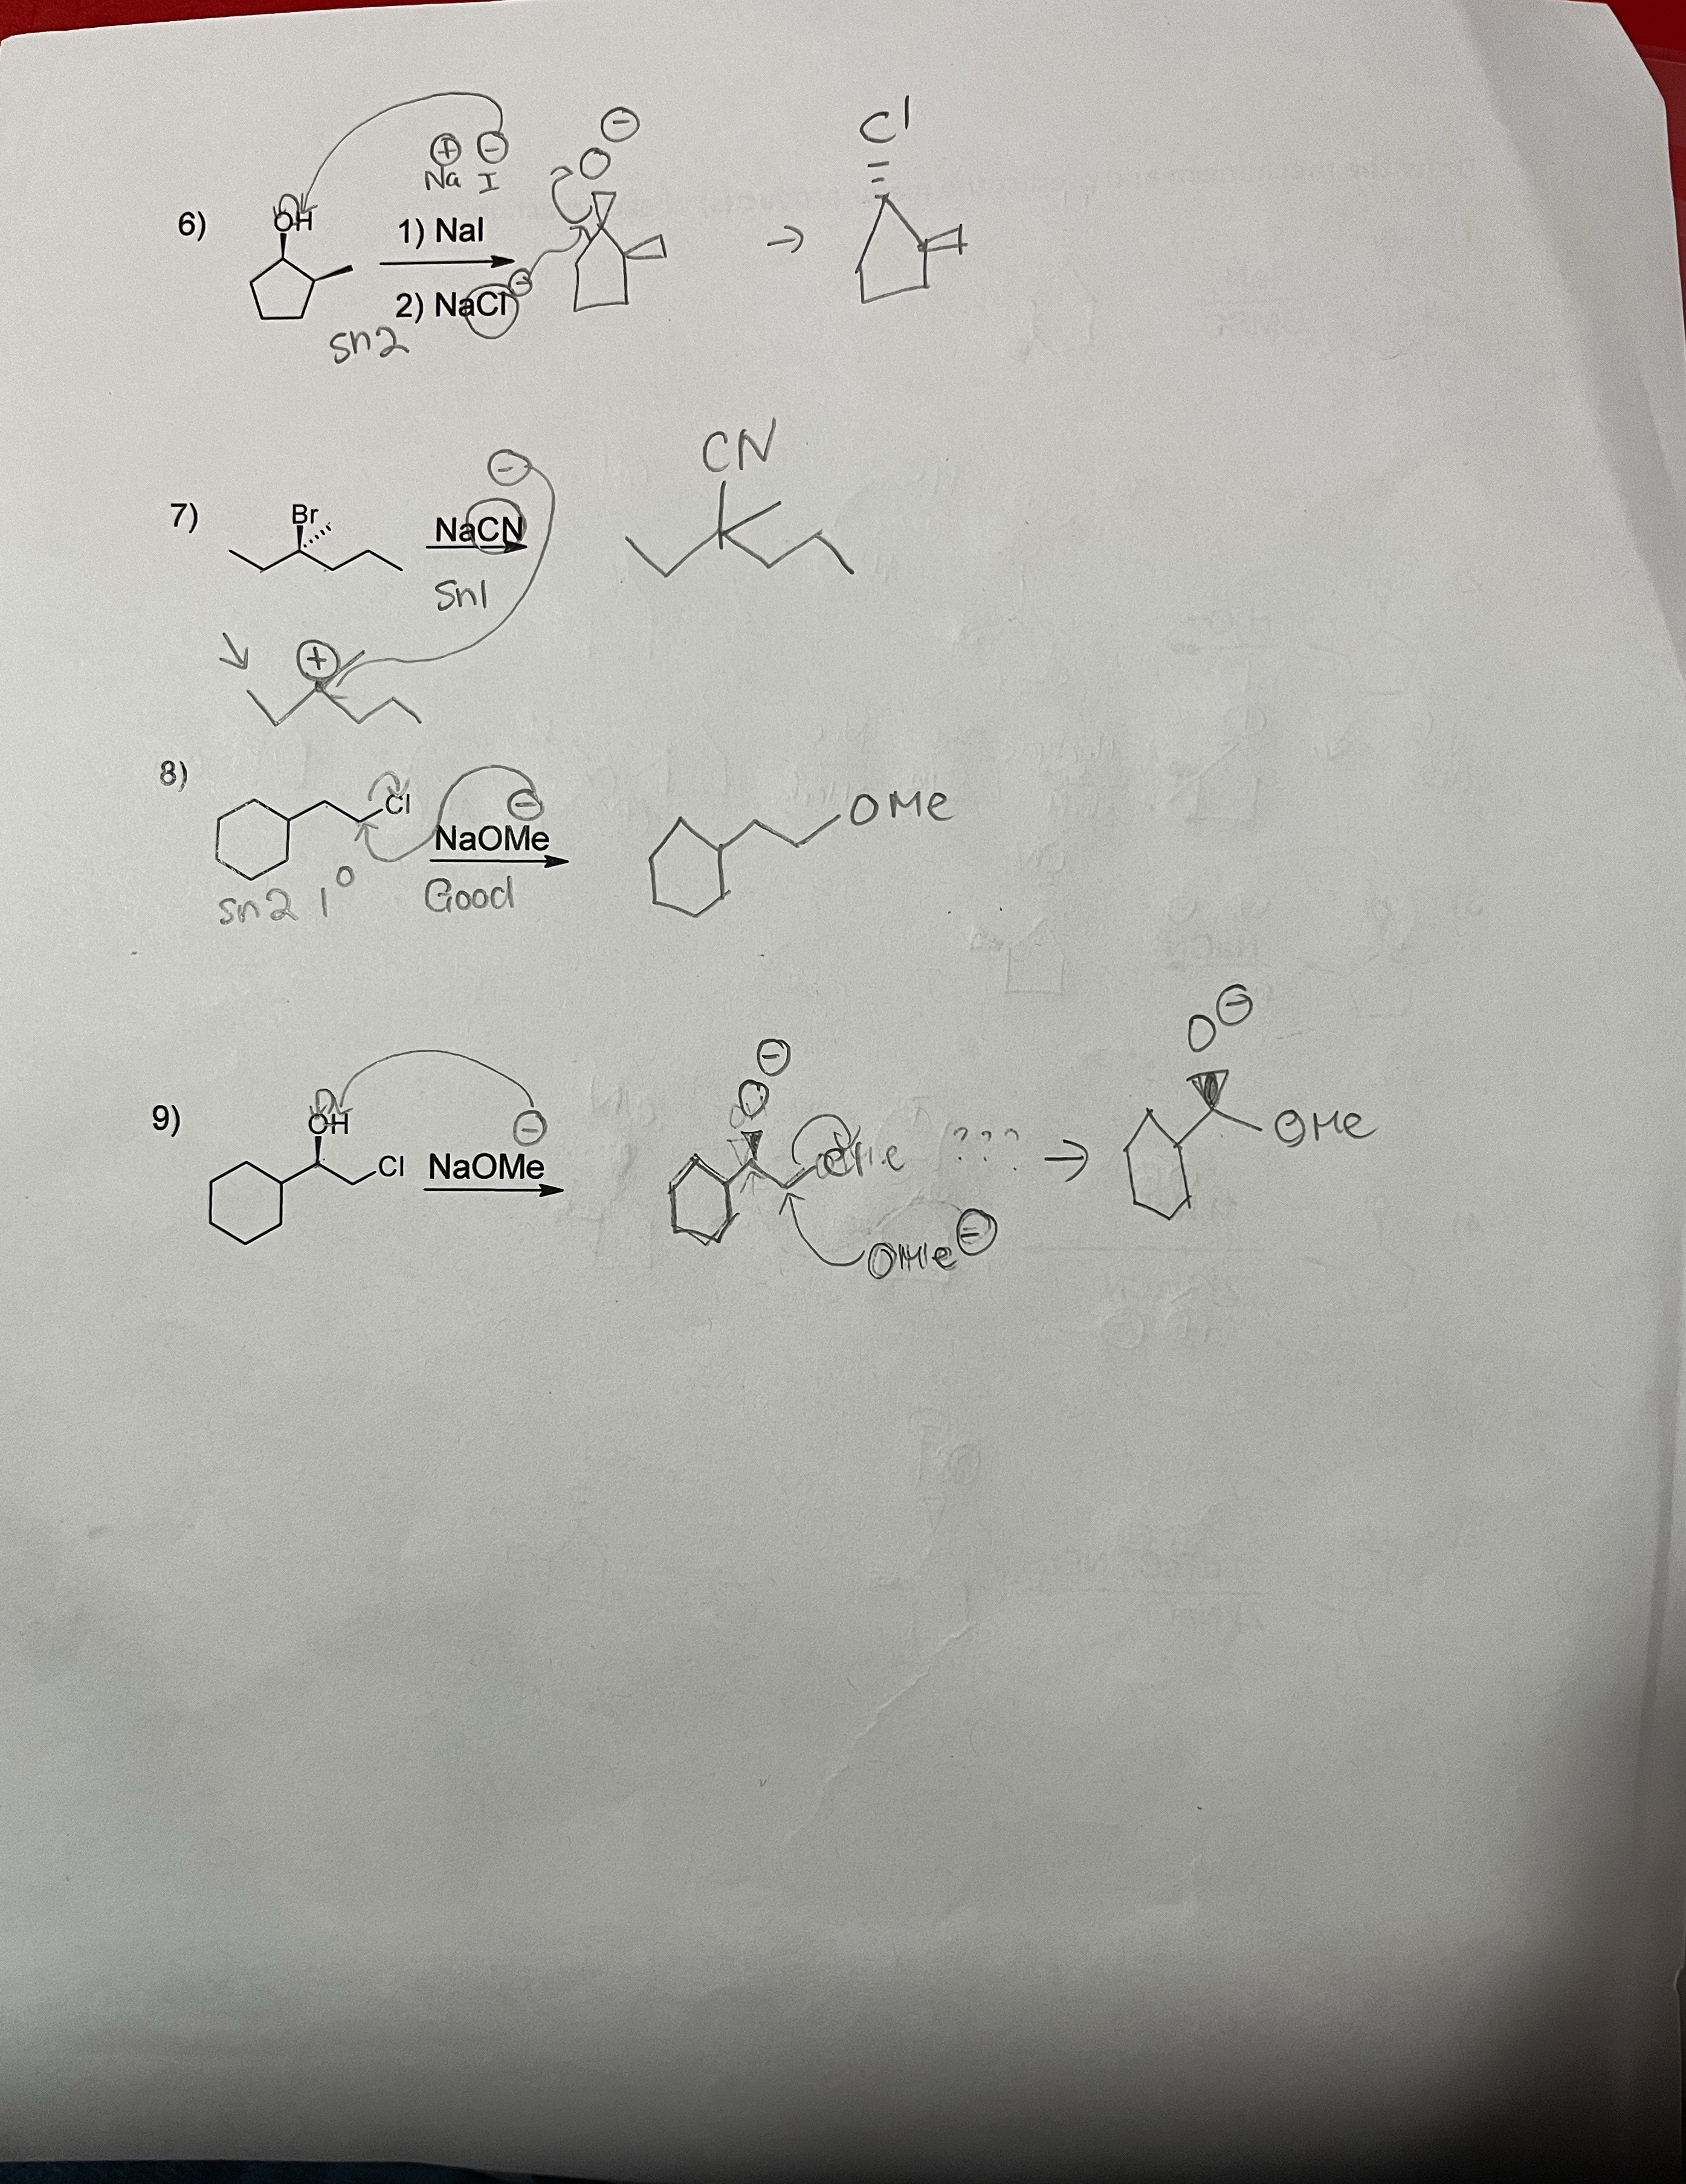 Na I
6) OH 1) NaI O Cl
2) NaCl
sn2
CN
7) Br NaCN
Sn1
8) Cl NaOMe OMe
sn2 1° Good
O
O
9) OH Cl NaOMe ??? → OMe
OMe